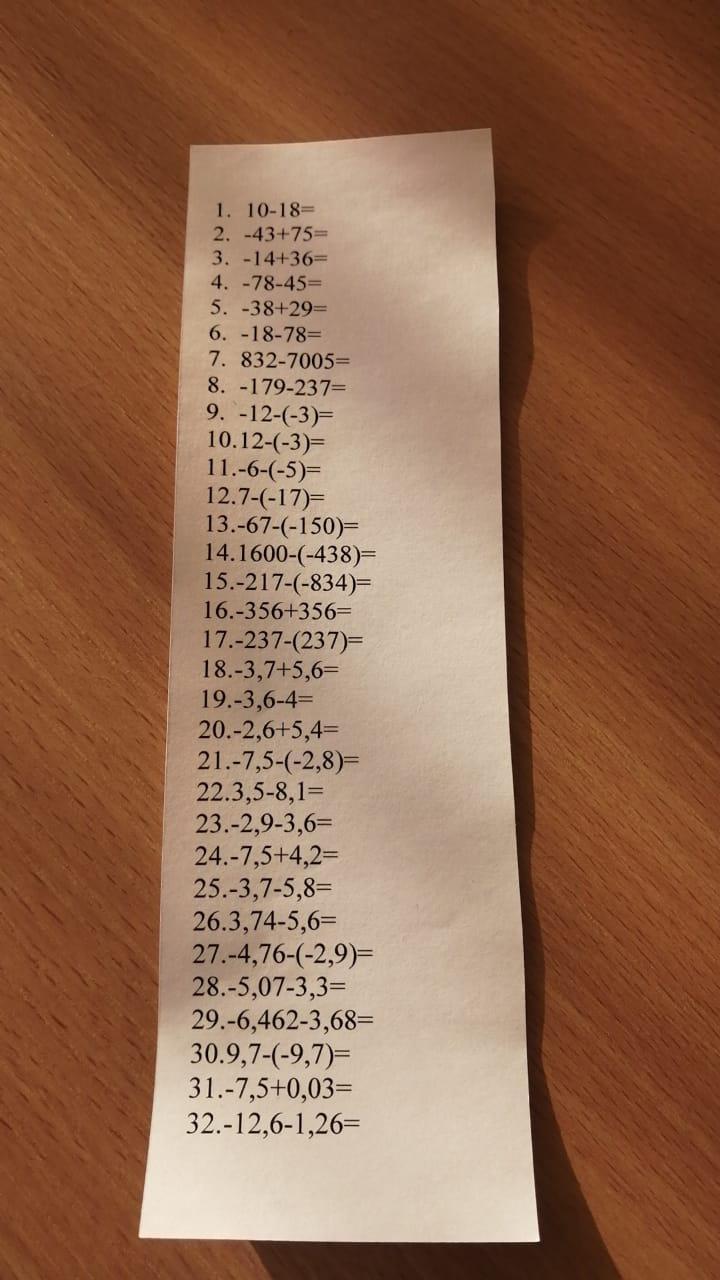 1. 10-18=
2. -43+75=
3. -14+36=
4. -78-45=
5. -38+29=
6. -18-78=
7. 832-7005=
8. -179-237=
9. -12-(-3)=
10.12-(-3)=
11.-6-(-5)=
12.7-(-17)=
13.-67-(-150)=
14.1600-(-438)=
15.-217-(-834)=
16.-356+356=
17.-237-(237)=
18.-3,7+5,6=
19.-3,6-4=
20.-2,6+5,4=
21.-7,5-(-2,8)=
22.3,5-8,1=
23.-2,9-3,6=
24.-7,5+4,2=
25.-3,7-5,8=
26.3,74-5,6=
27.-4,76-(-2,9)=
28.-5,07-3,3=
29.-6,462-3,68=
30.9,7-(-9,7)=
31.-7,5+0,03=
32.-12,6-1,26=